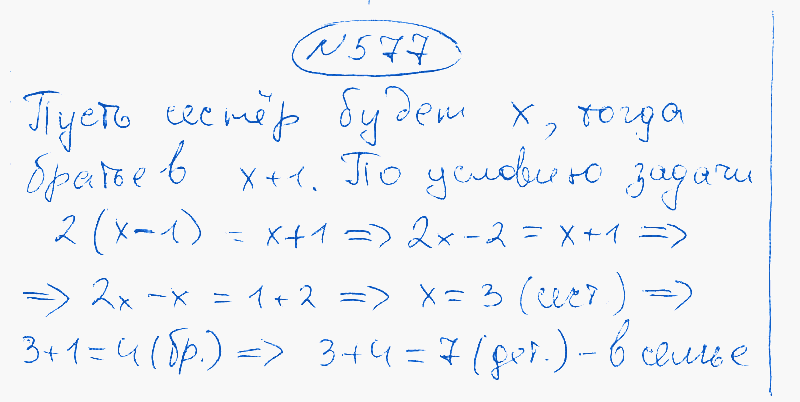 №577
Пусть сестёр будет x, тогда
братьев x+1. По условию задачи
2(x-1) = x+1 => 2x-2 = x+1 =>
=> 2x-x = 1+2 => x=3 (сест.) =>
3+1=4(бр.) => 3+4=7(дет.) - в семье